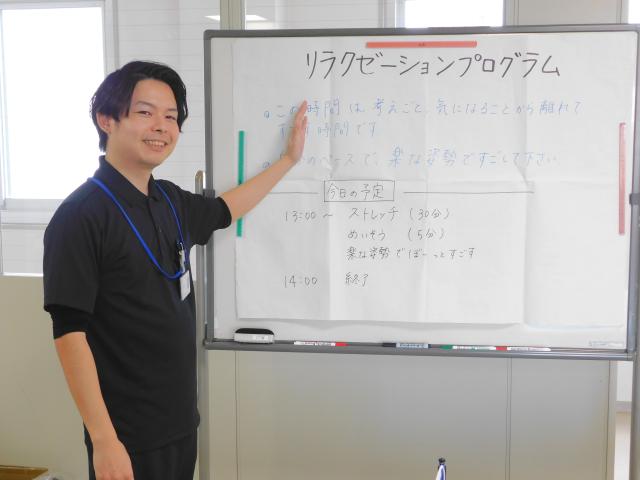 リラクゼーションプログラム
この時間は考えごと、気になることから離れて
すごす時間です
のペースで、楽な姿勢ですごして下さい
今日の予定
13:00〜 ストレッチ（30分）
めいそう（5分）
楽な姿勢でぼーっとすごす
14:00 終了